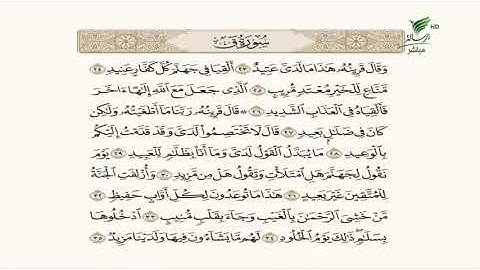 HD
الرسالة
مباشر
سُورَةُ ق
وَقَالَ قَرِينُهُۥ هَٰذَا مَا لَدَىَّ عَتِيدٌ ٢٣ أَلْقِيَا فِى جَهَنَّمَ كُلَّ كَفَّارٍ عَنِيدٍ ٢٤
مَّنَّاعٍ لِّلْخَيْرِ مُعْتَدٍ مُّرِيبٍ ٢٥ ٱلَّذِى جَعَلَ مَعَ ٱللَّهِ إِلَٰهًا ءَاخَرَ
فَأَلْقِيَاهُ فِى ٱلْعَذَابِ ٱلشَّدِيدِ ٢٦ ۞ قَالَ قَرِينُهُۥ رَبَّنَا مَآ أَطْغَيْتُهُۥ وَلَٰكِن
كَانَ فِى ضَلَٰلٍۭ بَعِيدٍ ٢٧ قَالَ لَا تَخْتَصِمُوا۟ لَدَىَّ وَقَدْ قَدَّمْتُ إِلَيْكُم
بِٱلْوَعِيدِ ٢٨ مَا يُبَدَّلُ ٱلْقَوْلُ لَدَىَّ وَمَآ أَنَا۠ بِظَلَّٰمٍ لِّلْعَبِيدِ ٢٩ يَوْمَ
نَقُولُ لِجَهَنَّمَ هَلِ ٱمْتَلَأْتِ وَتَقُولُ هَلْ مِن مَّزِيدٍ ٣٠ وَأُزْلِفَتِ ٱلْجَنَّةُ
لِلْمُتَّقِينَ غَيْرَ بَعِيدٍ ٣١ هَٰذَا مَا تُوعَدُونَ لِكُلِّ أَوَّابٍ حَفِيظٍ ٣٢
مَّنْ خَشِىَ ٱلرَّحْمَٰنَ بِٱلْغَيْبِ وَجَآءَ بِقَلْبٍ مُّنِيبٍ ٣٣ ٱدْخُلُوهَا
بِسَلَٰمٍ ذَٰلِكَ يَوْمُ ٱلْخُلُودِ ٣٤ لَهُم مَّا يَشَآءُونَ فِيهَا وَلَدَيْنَا مَزِيدٌ ٣٥